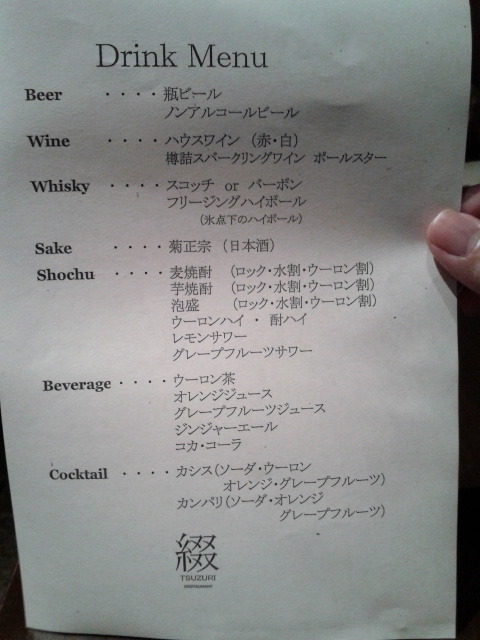 Drink Menu
Beer ・・・・ 瓶ビール
ノンアルコールビール
Wine ・・・・ ハウスワイン (赤・白)
樽詰スパークリングワイン ポールスター
Whisky ・・・・ スコッチ or バーボン
フリージングハイボール
(氷点下のハイボール)
Sake ・・・・ 菊正宗 (日本酒)
Shochu ・・・・ 麦焼酎 (ロック・水割・ウーロン割)
芋焼酎 (ロック・水割・ウーロン割)
泡盛 (ロック・水割・ウーロン割)
ウーロンハイ ・ 酎ハイ
レモンサワー
グレープフルーツサワー
Beverage ・・・・ ウーロン茶
オレンジジュース
グレープフルーツジュース
ジンジャーエール
コカ・コーラ
Cocktail ・・・・ カシス(ソーダ・ウーロン
オレンジ・グレープフルーツ)
カンパリ(ソーダ・オレンジ
グレープフルーツ)
綴
TSUZURI